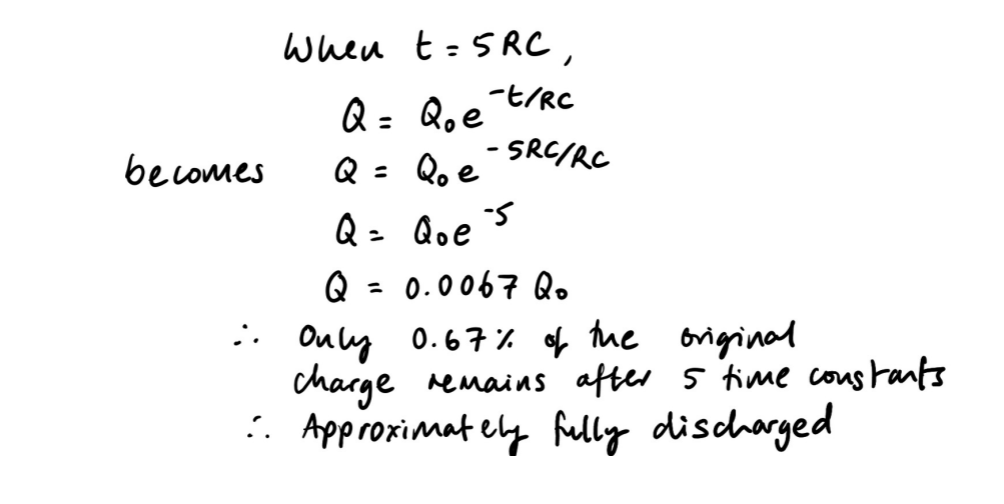 When t = 5RC,
Q = Q₀e^-t/RC
becomes Q = Q₀e^-5RC/RC
Q = Q₀e^-5
Q = 0.0067 Q₀
∴ Only 0.67% of the original
charge remains after 5 time constants
∴ Approximately fully discharged